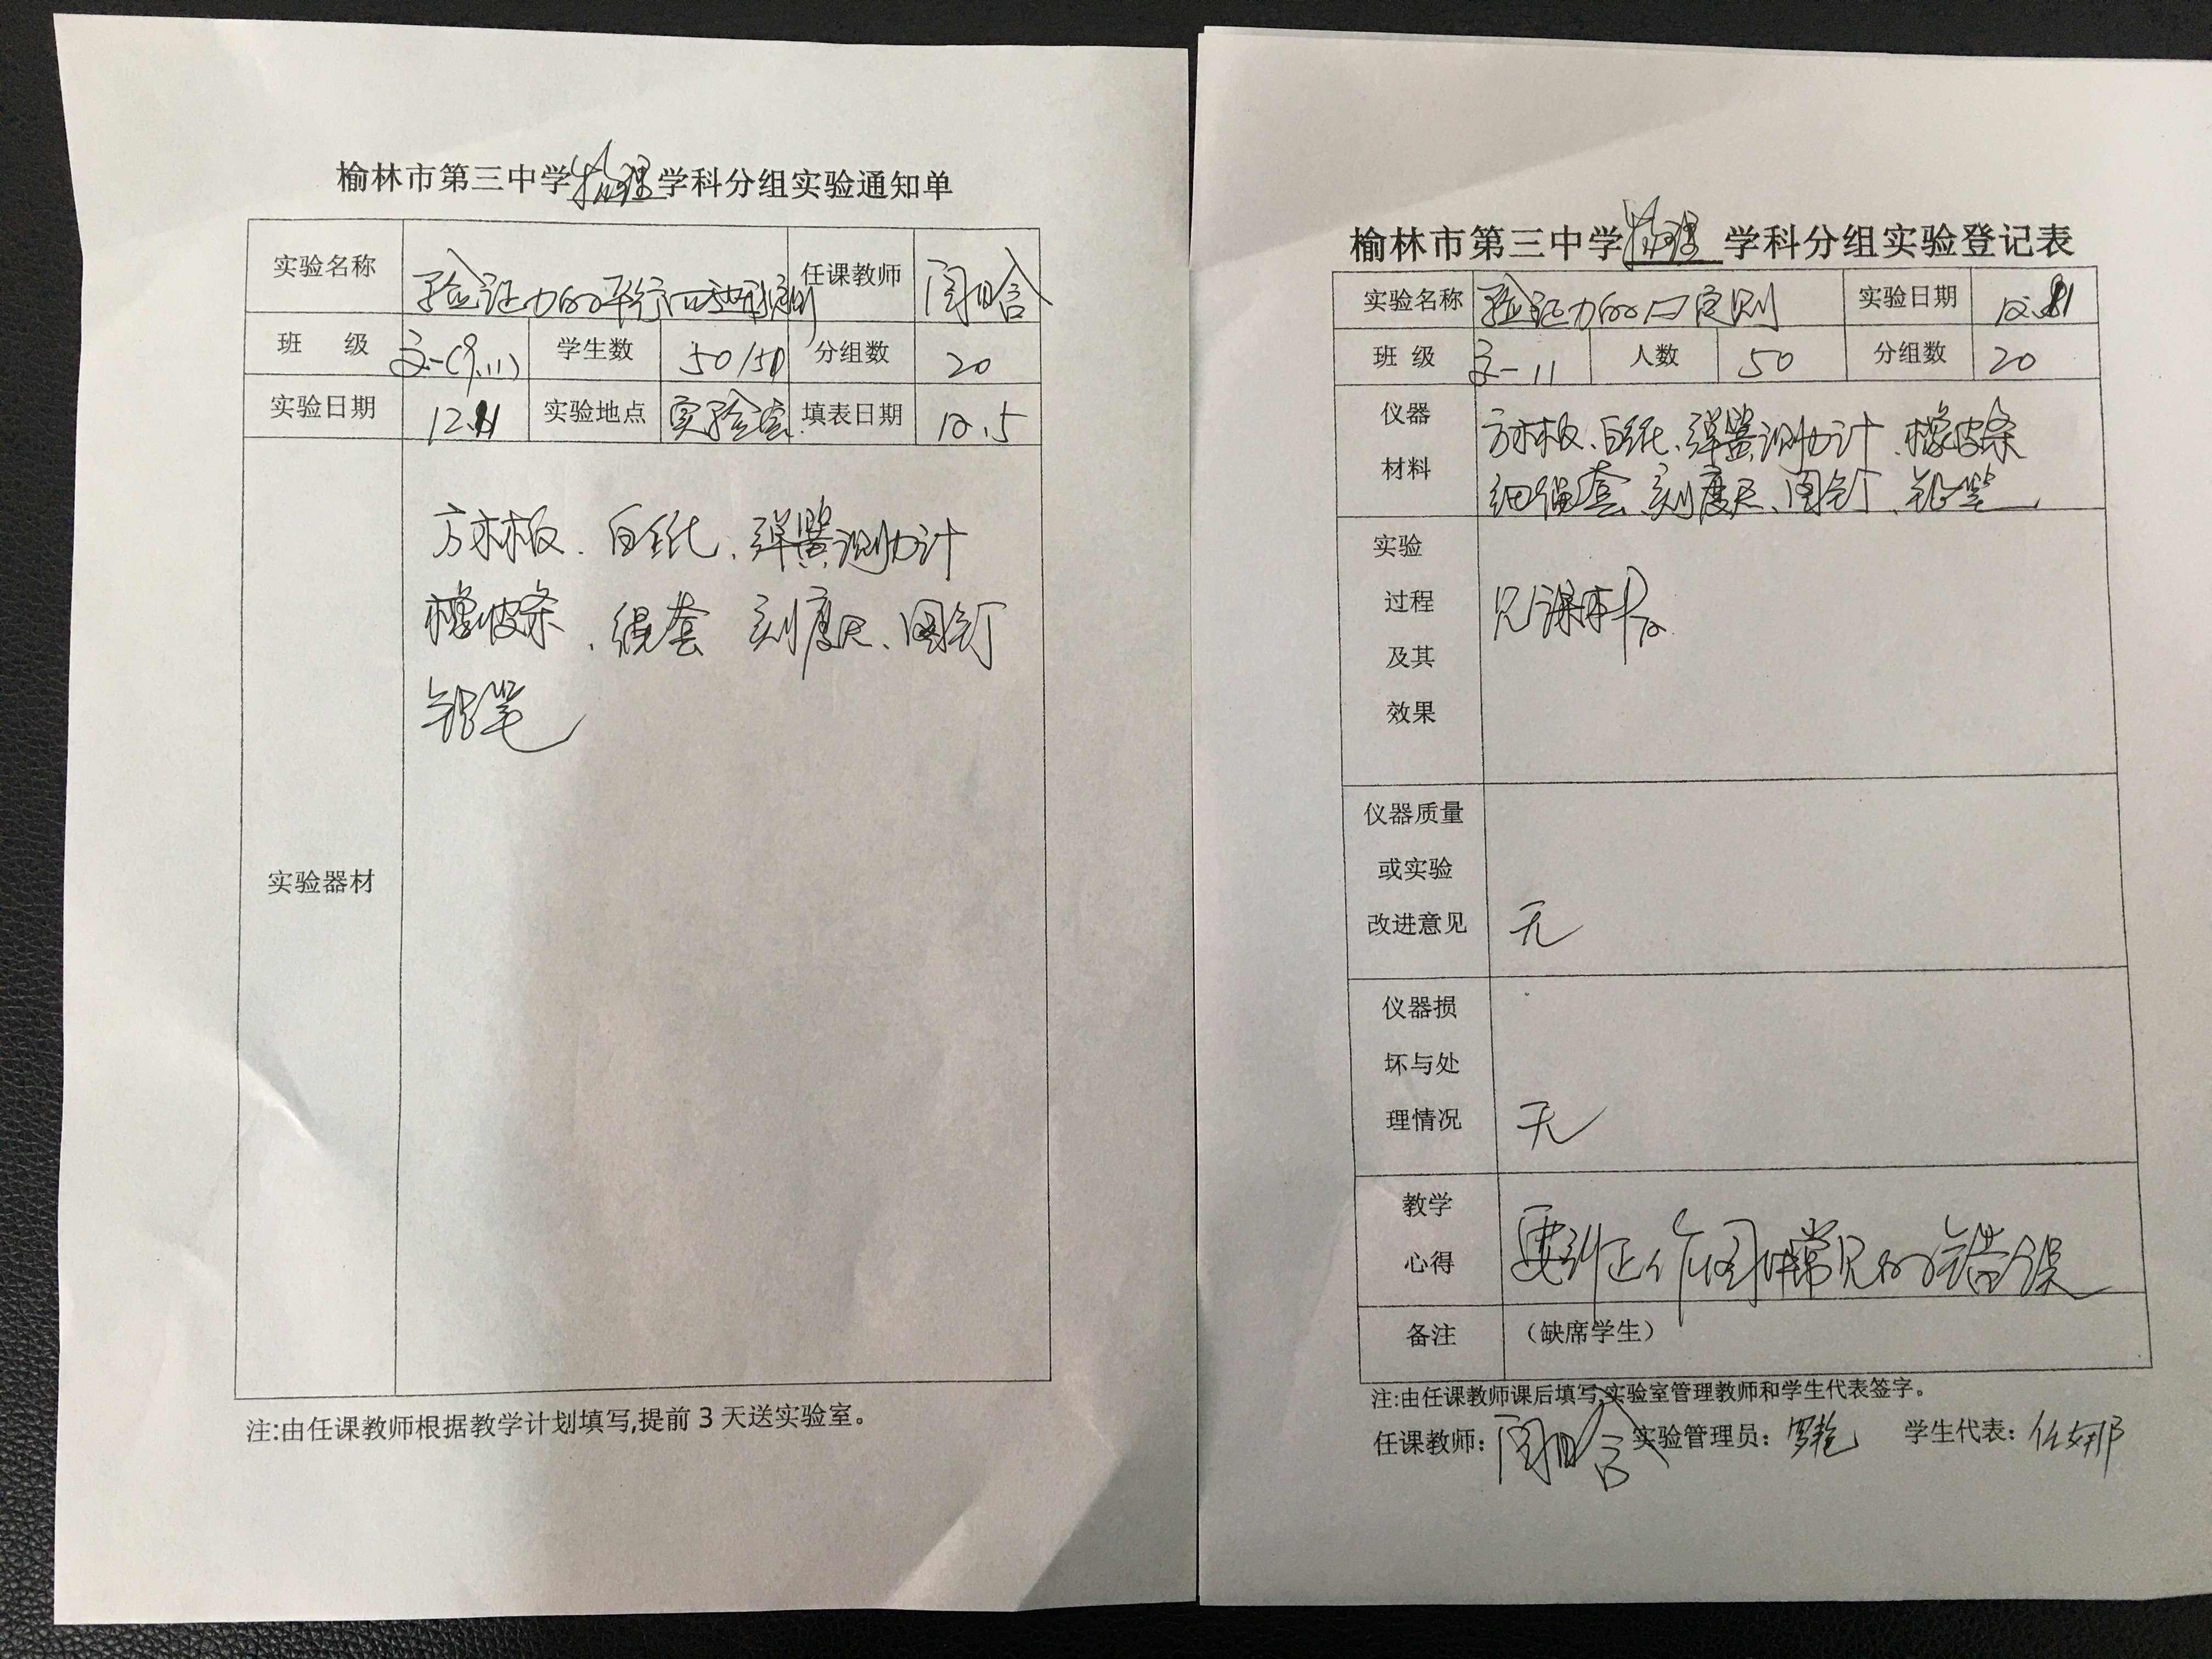 榆林市第三中学物理学科分组实验通知单
实验名称 验证力的平行四边形定则 任课教师
班 级 高一(9.11) 学生数 50/50 分组数 20
实验日期 12.11 实验地点 实验室 填表日期 12.5
实验器材
方木板、白纸、弹簧测力计
橡皮条、绳套 刻度尺、图钉
铅笔
注:由任课教师根据教学计划填写,提前3天送实验室。
榆林市第三中学物理学科分组实验登记表
实验名称 验证力的口定则 实验日期 12.11
班 级 高一11 人数 50 分组数 20
仪器材料
方木板、白纸、弹簧测力计、橡皮条
细绳套、刻度尺、图钉、铅笔
实验过程及其效果
见课本
仪器质量或实验改进意见 无
仪器损坏与处理情况 无
教学心得 要纠正作图中常见的错误
备注 （缺席学生）
注:由任课教师课后填写,实验室管理教师和学生代表签字。
任课教师: 实验管理员: 罗艳 学生代表: 任娜